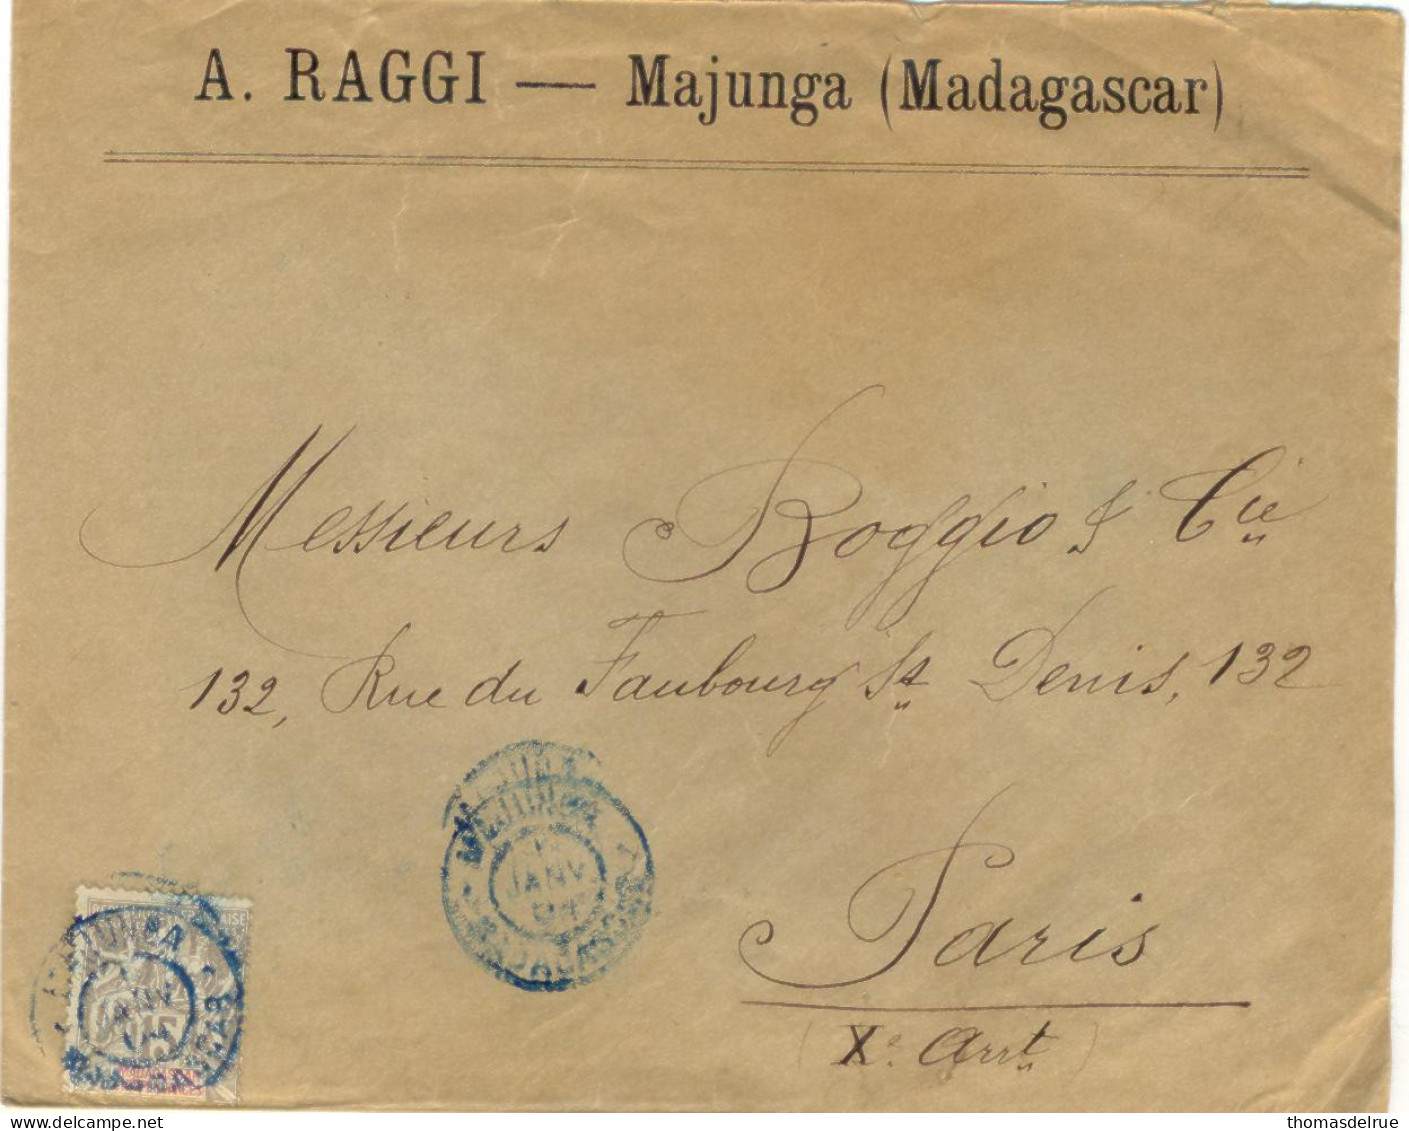 A. RAGGI — Majunga (Madagascar)
Messieurs Boggio & Cie
132, Rue du Faubourg St Denis, 132
Paris
(Xe Arrt)
MAJUNGA
JANV
04
MADAGASCAR
MAJUNGA
JANV
MADAGASCAR
15
thomasdelrue